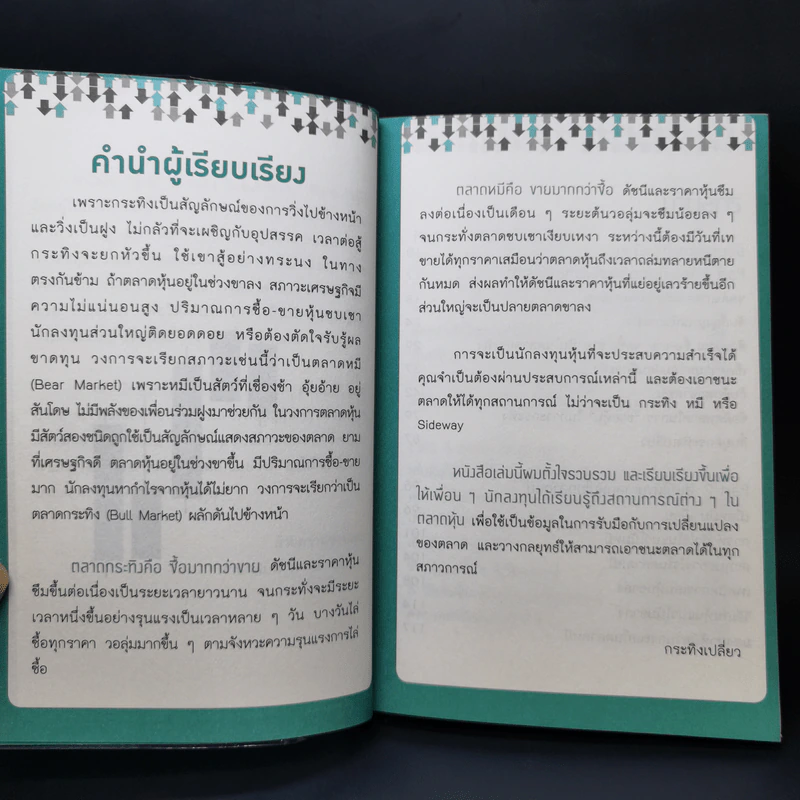 คำนำผู้เรียบเรียง
เพราะกระทิงเป็นสัญลักษณ์ของการวิ่งไปข้างหน้า
และวิ่งเป็นฝูง ไม่กลัวที่จะเผชิญกับอุปสรรค เวลาต่อสู้
กระทิงจะยกหัวขึ้น ใช้เขาสู้อย่างทระนง ในทาง
ตรงกันข้าม ถ้าตลาดหุ้นอยู่ในช่วงขาลง สภาวะเศรษฐกิจมี
ความไม่แน่นอนสูง ปริมาณการซื้อ-ขายหุ้นซบเซา
นักลงทุนส่วนใหญ่ติดยอดดอย หรือต้องตัดใจรับรู้ผล
ขาดทุน วงการจะเรียกสภาวะเช่นนี้ว่าเป็นตลาดหมี
(Bear Market) เพราะหมีเป็นสัตว์ที่เชื่องช้า อุ้ยอ้าย อยู่
สันโดษ ไม่มีพลังของเพื่อนร่วมฝูงมาช่วยกัน ในวงการตลาดหุ้น
มีสัตว์สองชนิดถูกใช้เป็นสัญลักษณ์แสดงสภาวะของตลาด ยาม
ที่เศรษฐกิจดี ตลาดหุ้นอยู่ในช่วงขาขึ้น มีปริมาณการซื้อ-ขาย
มาก นักลงทุนหากำไรจากหุ้นได้ไม่ยาก วงการจะเรียกว่าเป็น
ตลาดกระทิง (Bull Market) ผลักดันไปข้างหน้า
ตลาดกระทิงคือ ซื้อมากกว่าขาย ดัชนีและราคาหุ้น
ซึมขึ้นต่อเนื่องเป็นระยะเวลายาวนาน จนกระทั่งจะมีระยะ
เวลาหนึ่งขึ้นอย่างรุนแรงเป็นเวลาหลาย ๆ วัน บางวันไล่
ซื้อทุกราคา วอลุ่มมากขึ้น ๆ ตามจังหวะความรุนแรงการไล่
ซื้อ
ตลาดหมีคือ ขายมากกว่าซื้อ ดัชนีและราคาหุ้นซึม
ลงต่อเนื่องเป็นเดือน ๆ ระยะต้นวอลุ่มจะซึมน้อยลง ๆ
จนกระทั่งตลาดซบเซาเงียบเหงา ระหว่างนี้ต้องมีวันที่เท
ขายได้ทุกราคาเสมือนว่าตลาดหุ้นถึงเวลาถล่มทลายหนีตาย
กันหมด ส่งผลทำให้ดัชนีและราคาหุ้นที่แย่อยู่เลวร้ายขึ้นอีก
ส่วนใหญ่จะเป็นปลายตลาดขาลง
การจะเป็นนักลงทุนหุ้นที่จะประสบความสำเร็จได้
คุณจำเป็นต้องผ่านประสบการณ์เหล่านี้ และต้องเอาชนะ
ตลาดให้ได้ทุกสถานการณ์ ไม่ว่าจะเป็น กระทิง หมี หรือ
Sideway
หนังสือเล่มนี้ผมตั้งใจรวบรวม และเรียบเรียงขึ้นเพื่อ
ให้เพื่อน ๆ นักลงทุนได้เรียนรู้ถึงสถานการณ์ต่าง ๆ ใน
ตลาดหุ้น เพื่อใช้เป็นข้อมูลในการรับมือกับการเปลี่ยนแปลง
ของตลาด และวางกลยุทธ์ให้สามารถเอาชนะตลาดได้ในทุก
สภาวการณ์
กระทิงเปลี่ยว